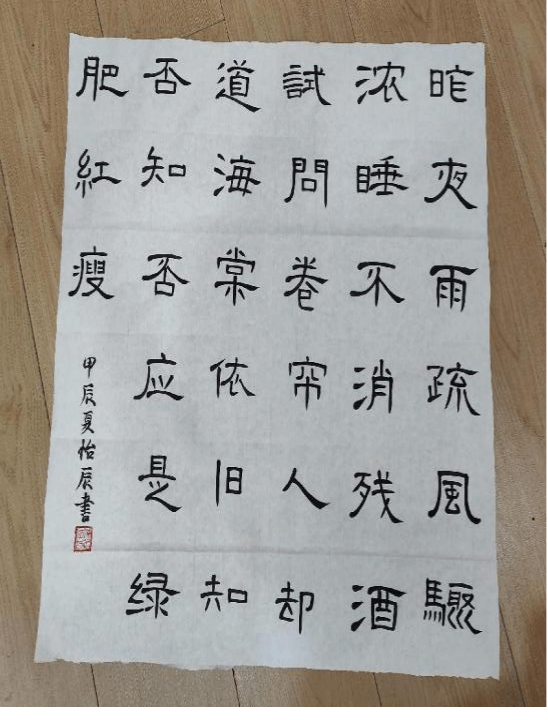 昨夜雨疏風驟
浓睡不消残酒
試問卷帘人却
道海棠依旧知
否知否应是绿
肥紅瘦
甲辰夏怡辰書